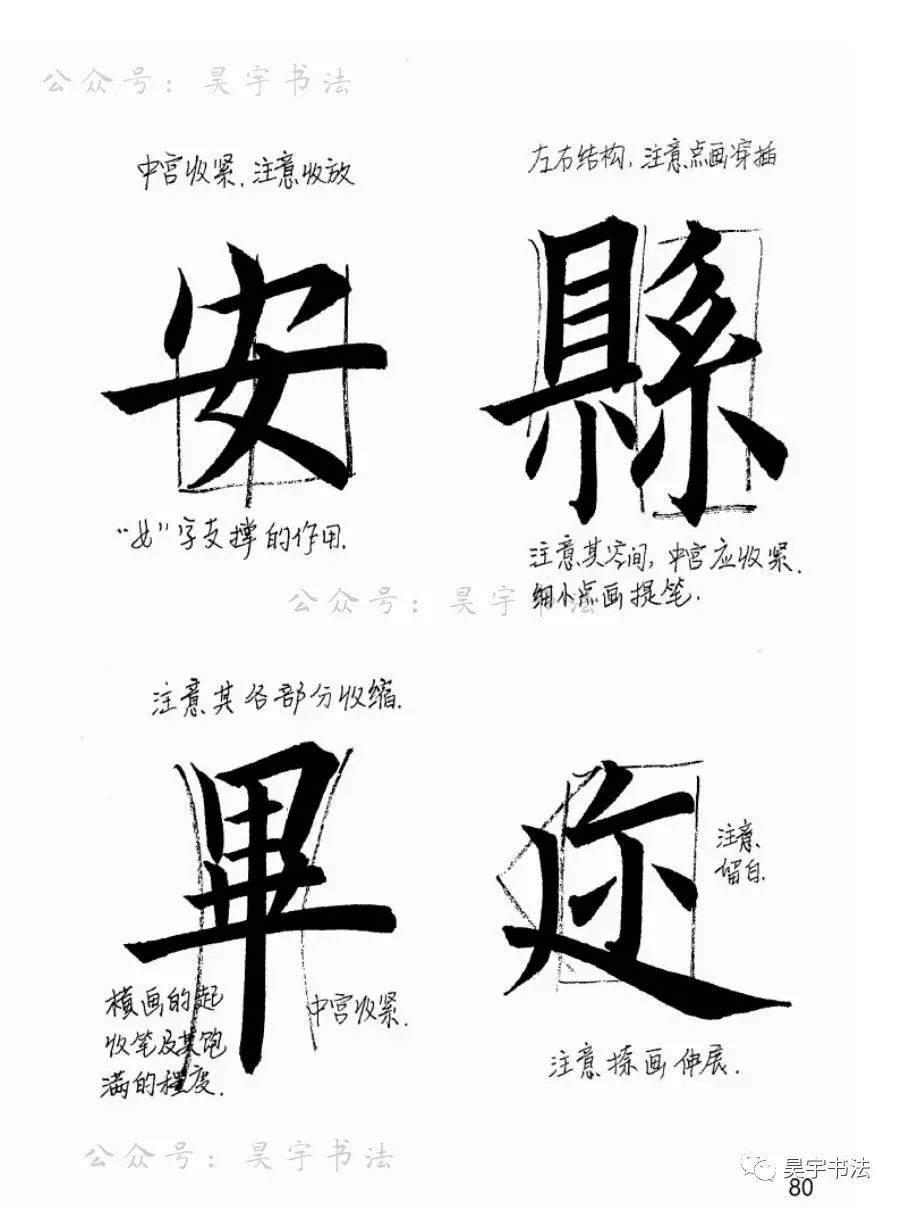 公众号：昊宇书法
中宫收紧.注意收放
左右结构，注意点画穿插
安
縣
“女”字支撑的作用.
注意其空间，中宫应收紧.
细小点画提笔.
公众号：昊宇书法
注意其各部分收缩.
畢
迩
注意
留白.
横画的起
收笔及其饱
满的程度.
中宫收紧.
注意捺画伸展.
公众号：昊宇书法
昊宇书法
80